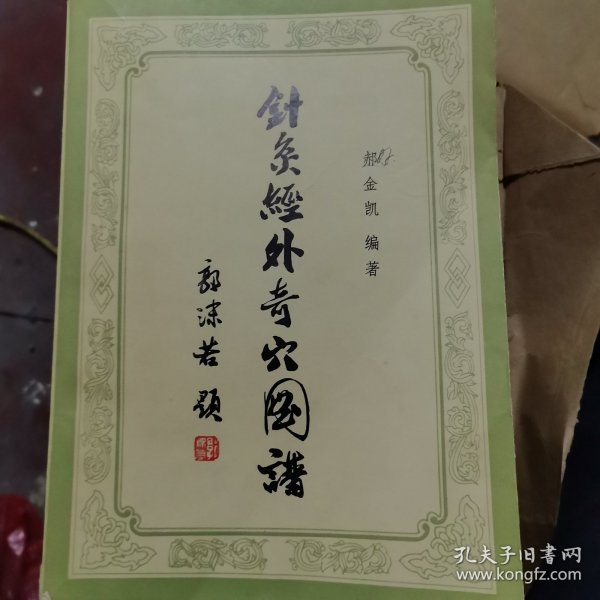 郝金凯 编著
針灸經外奇穴图譜
郭沫若題
孔夫子旧書网
www.kongfz.com